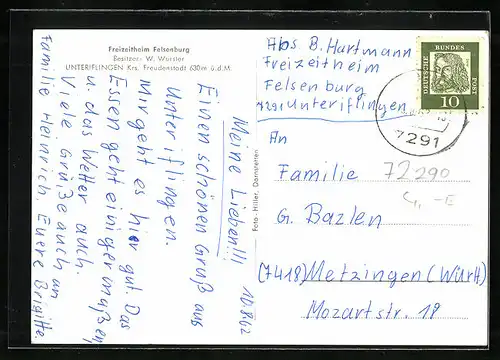 Freizeitheim Felsenburg
Besitzer: W. Wurster
UNTERIFLINGEN Krs. Freudenstadt 630m ü.d.M.
10.8.62
Meine Lieben!!!
Einen schönen Gruß aus
Unteriflingen.
Mir geht es hier gut. Das
Essen geht einigermaßen
u. das Wetter auch.
Viele Grüße auch an
Familie Heinrich. Euere Brigitte.
Foto-Hiller, Dornstetten
Abs B. Hartmann
Freizeitheim
Felsenburg
7291 Unteriflingen
DEUTSCHE BUNDES POST
10
7291
An
Familie
72290
G. Bazlen
(7418) Metzingen (Württ)
Mozartstr. 18